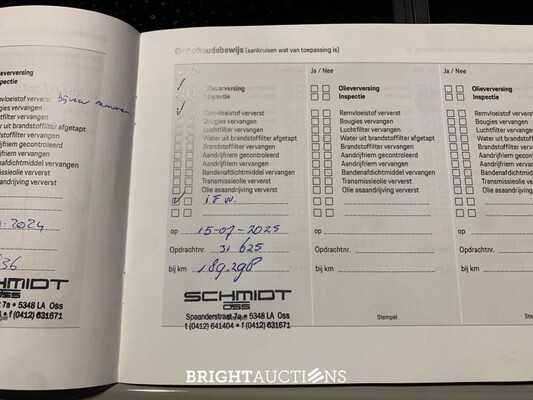 Onderhoudsbewijs (aankruisen wat van toepassing is)
lieverversing
nspectie
bijvuw remmen
emvloeistof ververst
ougies vervangen
chtfilter vervangen
ater uit brandstoffilter afgetapt
andstoffilter vervangen
andrijfriem gecontroleerd
andrijfriem vervangen
ndenafdichtmiddel vervangen
ansmissieolie ververst
ie asaandrijving ververst
2024
36
CHMIDT
OSS
t 7a • 5348 LA Oss
• f (0412) 631671
Olieverversing
Inspectie
Remvloeistof ververst
Bougies vervangen
Luchtfilter vervangen
Water uit brandstoffilter afgetapt
Brandstoffilter vervangen
Aandrijfriem gecontroleerd
Aandrijfriem vervangen
Bandenafdichtmiddel vervangen
Transmissieolie ververst
Olie asaandrijving ververst
i.F.W.
op 15-07-2025
Opdrachtnr. 31625
bij km 189.298
SCHMIDT
OSS
Spaanderstraat 7a • 5348 LA Oss
t (0412) 641404 • f (0412) 631671
Ja / Nee
Olieverversing
Inspectie
Remvloeistof ververst
Bougies vervangen
Luchtfilter vervangen
Water uit brandstoffilter afgetapt
Brandstoffilter vervangen
Aandrijfriem gecontroleerd
Aandrijfriem vervangen
Bandenafdichtmiddel vervangen
Transmissieolie ververst
Olie asaandrijving ververst
op
Opdrachtnr.
bij km
Stempel
Ja / Nee
Olieverversing
Inspectie
Remvloeistof ververst
Bougies vervangen
Luchtfilter vervangen
Water uit brandsto
Brandstoffilter verv
Aandrijfriem gecon
Aandrijfriem verva
Bandenafdichtmid
Transmissieolie ve
Olie asaandrijving
op
Opdrachtnr.
bij km
Stem
BRIGHTAUCTIONS